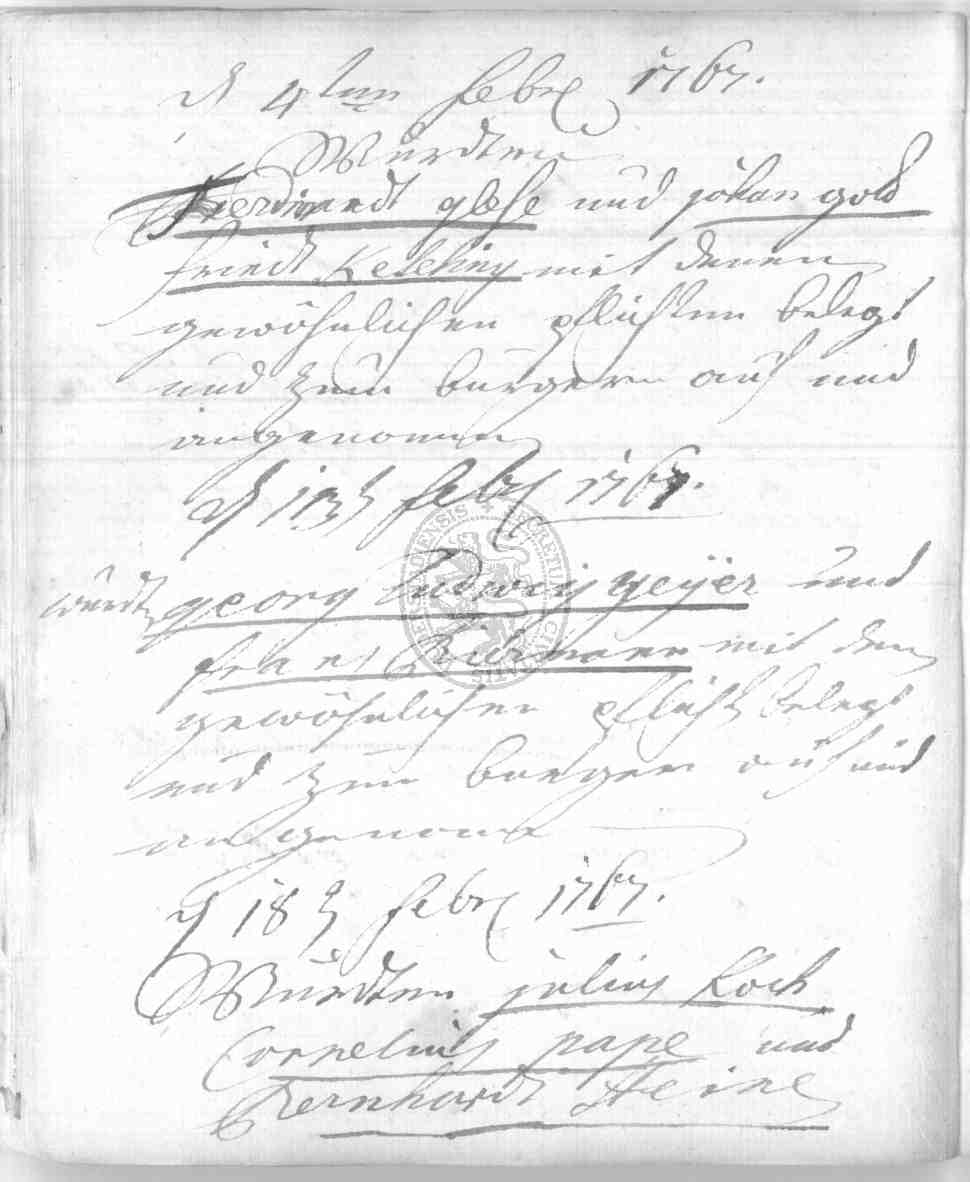 d 4ten febr 1767.
Würdten
Ferdinandt glese und johan gott
friedt Kelching mit denen
gewöhnlichen pflichten belegt
und zum burgern auf und
angenommen
d 13t febr 1767.
wurdt georg ludwig geÿer und
frans mit den
gewöhnlichen pflicht belegt
und zum burger auf und
angenome
d 18t febr 1767.
Würdten julius Koch
Cornelius pape und
Bernhardt Heine